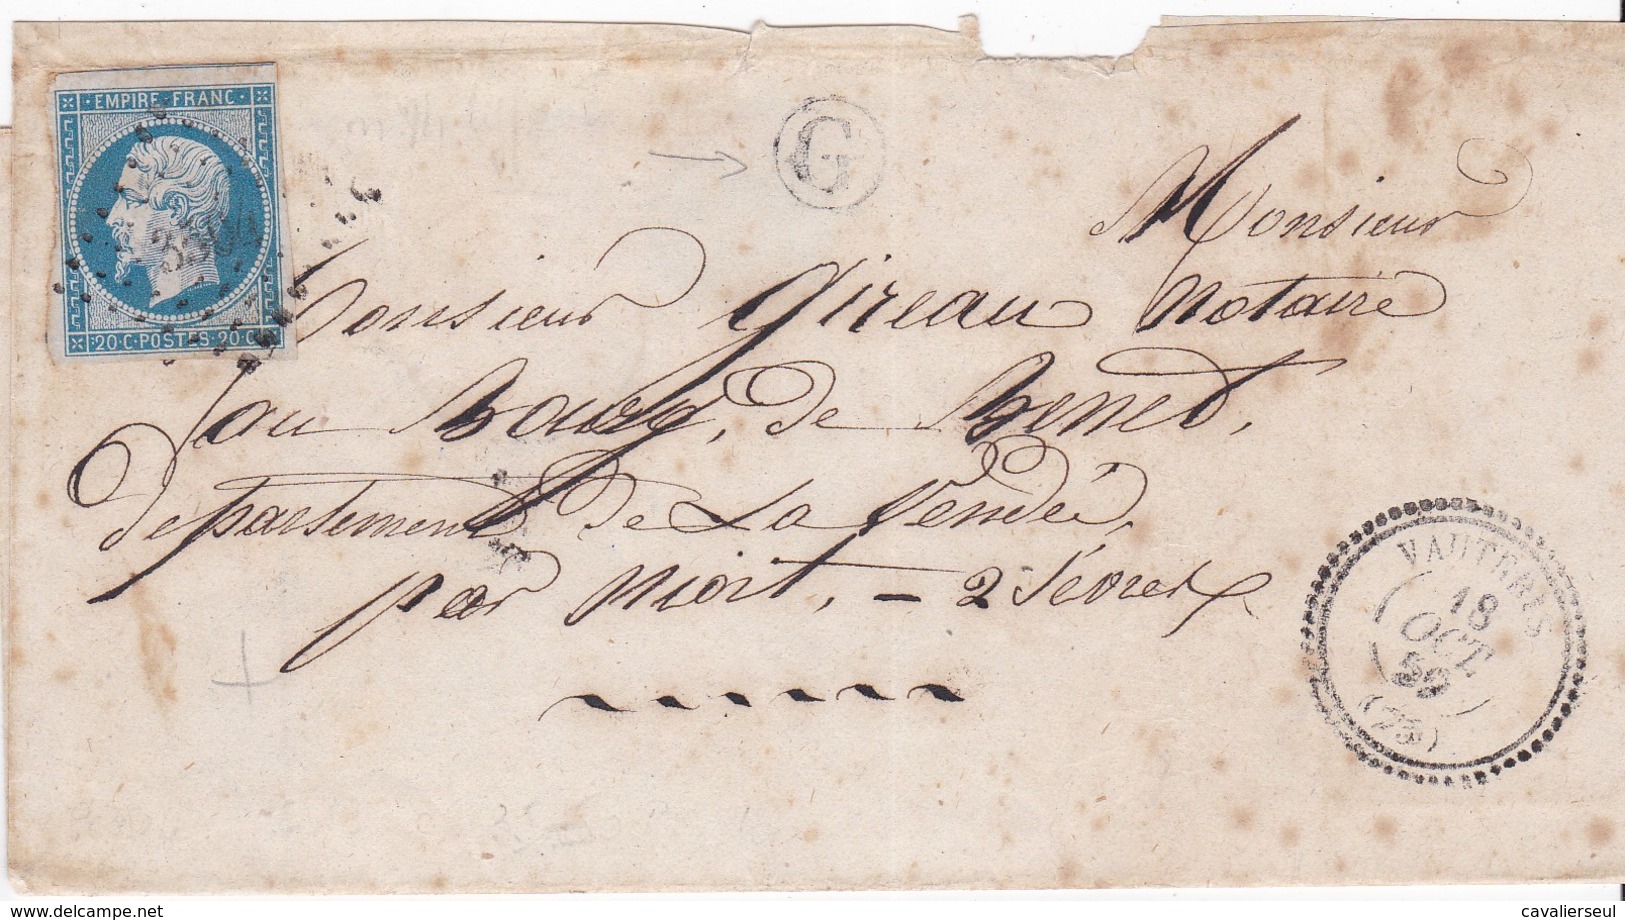 EMPIRE · FRANC ·
3504
20 · C · POSTES · 20 C
G
Monsieur
Monsieur Gireau Notaire
au Bourg, de Benet,
departement de La Vendée,
par Niort, - 2 Sévres
VAUTEBIS
18
OCT
59
(75)
www.delcampe.net
cavalierseul